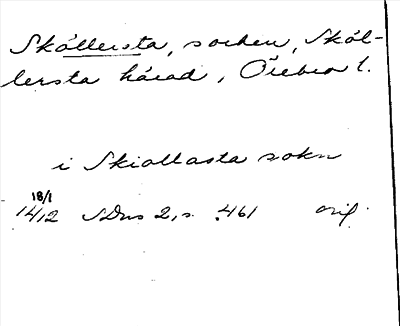 Sköllersta, socken, Sköl-
lersta härad, Örebro l.
i Skiollasta sokn
18/1
1412 SDns 2, s. 461 orig.